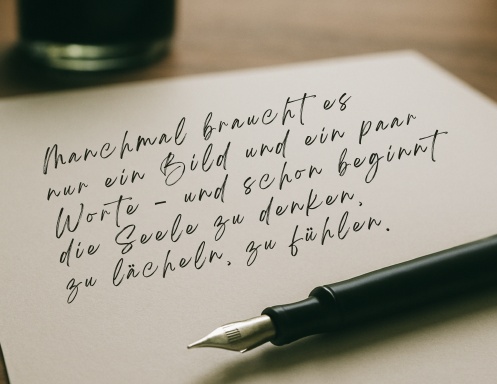 Manchmal braucht es
nur ein Bild und ein paar
Worte – und schon beginnt
die Seele zu denken,
zu lächeln, zu fühlen.